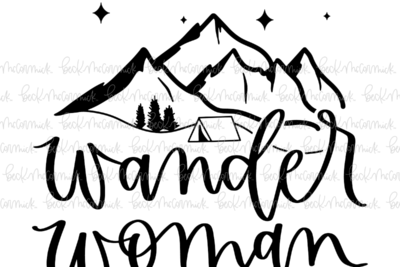 wander
woman